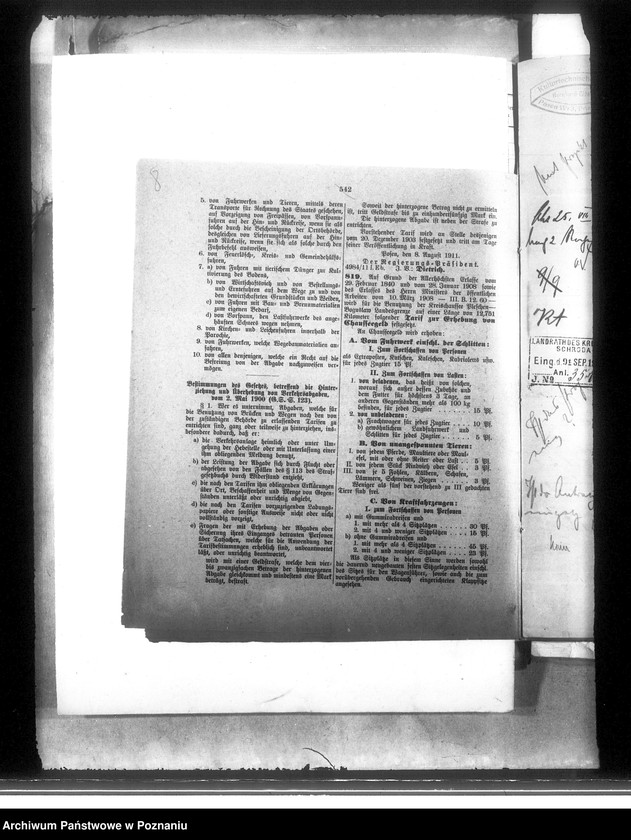 8
542
5. von Fuhrwerken und Tieren, mittels deren
Transporte für Rechnung des Staates geschehen,
auf Vorzeigung von Freipässen, von Vorspann-
fuhren auf der Hin- und Rückreise, wenn sie als
solche durch die Bescheinigung der Ortsbehörde,
desgleichen von Lieferungsfuhren auf der Hin-
und Rückreise, wenn sie sich als solche durch den
Fuhrbefehl ausweisen,
6. von Feuerlösch-, Kreis- und Gemeindehilfs-
fuhren,
7. a) von Fuhren mit tierischem Dünger zur Kul-
tivierung des Bodens,
b) von Wirtschaftsvieh und von Bestellungs-
und Erntefuhren auf dem Wege zu und von
den bewirtschafteten Grundstücken und Weiden,
c) von Fuhren mit Bau- und Brennmaterialien
zum eigenen Bedarf,
d) von Vorspann, den Lastfuhrwerke des ange-
häuften Schnees wegen nehmen,
8. von Kirchen- und Leichenfuhren innerhalb der
Parochie,
9. von Fuhrwerken, welche Wegebaumaterialien an-
fahren,
10. von allen denjenigen, welche ein Recht auf die
Befreiung von der Abgabe nachzuweisen ver-
mögen.
Bestimmungen des Gesetzes, betreffend die Hinter-
ziehung und Überhebung von Verkehrsabgaben,
vom 2. Mai 1900 (G.S. S. 123).
§ 1. Wer es unternimmt, Abgaben, welche für
die Benutzung von Brücken und Wegen nach den von
der zuständigen Behörde zu erlassenden Tarifen zu
entrichten sind, ganz oder teilweise zu hinterziehen, ins-
besondere dadurch, daß er:
a) die Verkehrsanlage heimlich oder unter Um-
gehung der Hebestelle oder mit Unterlassung einer
ihm obliegenden Meldung benutzt,
b) der Leistung der Abgabe sich durch Flucht oder
abgesehen von den Fällen des § 113 des Straf-
gesetzbuchs durch Widerstand entzieht,
c) die nach den Tarifen ihm obliegenden Erklärungen
über Ort, Beschaffenheit und Menge von Gegen-
ständen unterläßt oder unrichtig abgibt,
d) die nach den Tarifen vorzuzeigenden Ladungs-
papiere oder sonstige Ausweise nicht oder nicht
vollständig vorzeigt,
e) Fragen der mit Erhebung der Abgaben oder
Sicherung ihres Einganges betrauten Personen
über Tatsachen, welche für die Anwendung der
Tarifbestimmungen erheblich sind, unbeantwortet
läßt, oder unrichtig beantwortet,
wird mit einer Geldstrafe, welche dem vier-
bis zwanzigfachen Betrage der hinterzogenen
Abgabe gleichkommt und mindestens eine Mark
beträgt, bestraft.
Soweit der hinterzogene Betrag nicht zu ermitteln
ist, tritt Geldstrafe bis zu einhundertfünfzig Mark ein.
Die hinterzogene Abgabe ist neben der Strafe zu
entrichten.
Vorstehender Tarif wird an Stelle desjenigen
vom 20. Dezember 1903 festgesetzt und tritt am Tage
seiner Veröffentlichung in Kraft.
Posen, den 8. August 1911.
Der Regierungs-Präsident.
4984/11 I. Kb. J. V.: Dietrich.
819. Auf Grund der Allerhöchsten Erlasse vom
29. Februar 1840 und vom 28. Januar 1908 sowie
des Erlasses des Herrn Ministers der öffentlichen
Arbeiten vom 10. März 1908 — III. B. 12. 60 —
wird für die Benutzung der Kreischaussee Pleschen-
Bogusław Landesgrenze auf einer Länge von 12,751
Kilometer folgender Tarif zur Erhebung von
Chausseegeld festgesetzt.
An Chausseegeld wird erhoben:
A. Vom Fuhrwerk einschl. der Schlitten:
I. Zum Fortschaffen von Personen
als Extraposten, Kutschen, Kaleschen, Kabrioletts usw.
für jedes Zugtier 15 Pf.
II. Zum Fortschaffen von Lasten:
1. von beladenem, das heißt von solchem,
worauf sich außer dessen Zubehör und
dem Futter für höchstens 3 Tage, an
anderen Gegenständen mehr als 100 kg
befinden, für jedes Zugtier . . . . . . 15 Pf.
2. von unbeladenem:
a) Frachtwagen für jedes Zugtier . . . 10 Pf.
b) gewöhnlichem Landfuhrwerk und
Schlitten für jedes Zugtier . . . . . 5 Pf.
B. Von unangespannten Tieren:
I. von jedem Pferde, Maultiere oder Maul-
esel, mit oder ohne Reiter oder Last . . 5 Pf.
II. von jedem Stück Rindvieh oder Esel . . 3 Pf.
III. von je 5 Fohlen, Kälbern, Schafen,
Lämmern, Schweinen, Ziegen . . . . 3 Pf.
Weniger als fünf der vorstehend zu III gedachten
Tiere sind frei.
C. Von Kraftfahrzeugen:
I. zum Fortschaffen von Personen
a) mit Gummireifen und
1. mit mehr als 4 Sitzplätzen . . . . . 30 Pf.
2. mit 4 und weniger Sitzplätzen . . . 15 Pf.
b) ohne Gummireifen und
1. mit mehr als 4 Sitzplätzen . . . . . 45 Pf.
2. mit 4 und weniger Sitzplätzen . . . 23 Pf.
Als Sitzplätze in diesem Sinne werden sowohl
die dauernd vorgebauten festen Sitzgelegenheiten einschl.
des Sitzes für den Wagenführer, sowie auch die zum
vorübergehenden Gebrauch eingerichteten Klappsitze
angesehen.
LANDRATH DES KR
SCHRODA
Eing. d. 9 t. SEP. 19
Anl.
J. No.
Archiwum Państwowe w Poznaniu